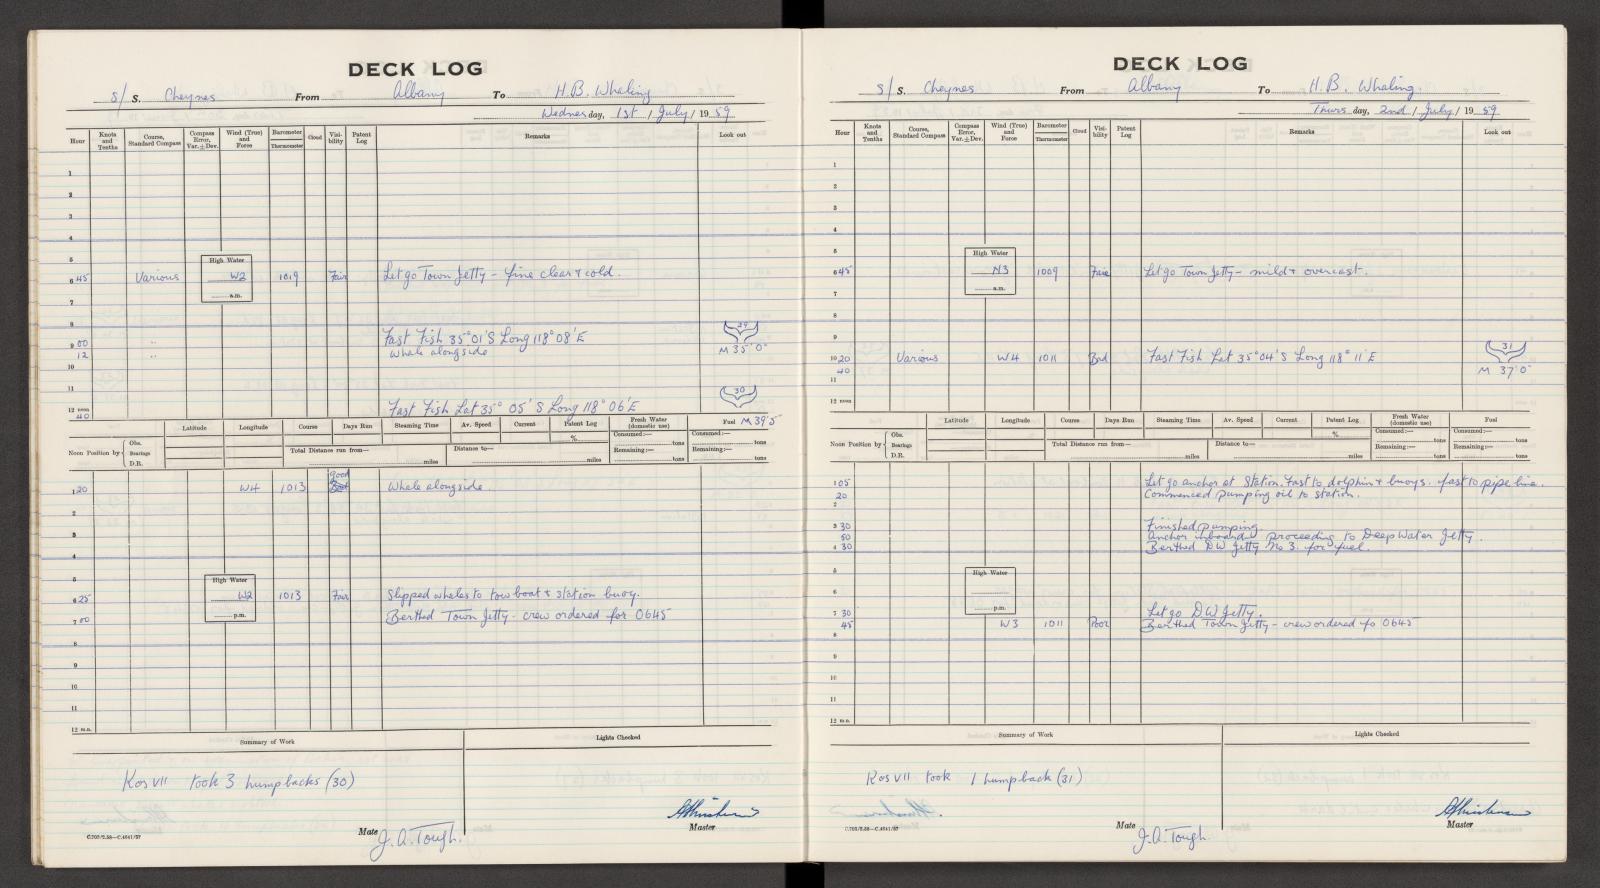 DECK LOG
S/ S. Cheynes From Albany To H.B. Whaling
Wednesday, 1st / July / 19 59
Hour Knots and Tenths Course, Standard Compass Compass Error, Var. ± Dev. Wind (True) and Force Barometer Thermometer Cloud Visibility Patent Log Remarks Look out
1
2
3
4
5 High Water
6 45 Various W2 1019 Fair Let go Town Jetty - fine clear & cold.
a.m.
7
8 29
9 00 " Fast Fish 35° 01' S Long 118° 08' E
12 " Whale alongside M 35' 0"
10
11 30
12 noon
40 Fast Fish Lat 35° 05' S Long 118° 06' E
Latitude Longitude Course Days Run Steaming Time Av. Speed Current Patent Log % Fresh Water (domestic use) Fuel M 39' 5
Consumed:— tons Consumed:—
Noon Position by Obs. Bearings D.R. Total Distance run from— miles Distance to— miles Remaining:— tons Remaining:— tons
good
1 20 W4 1013 Whale alongside.
2
3
4
5 High Water
6 25 W2 1013 Fair Slipped whales to tow boat & station buoy.
7 00 p.m. Berthed Town Jetty - crew ordered for 0645
8
9
10
11
12 m.n.
Summary of Work Lights Checked
Kos VII took 3 humpbacks (30)
C.702/2.58—C.4641/57 Mate J.A. Tough. Master
DECK LOG
S/ S. Cheynes From Albany To H.B. Whaling.
Thursday, 2nd / July / 19 59
Hour Knots and Tenths Course, Standard Compass Compass Error, Var. ± Dev. Wind (True) and Force Barometer Thermometer Cloud Visibility Patent Log Remarks Look out
1
2
3
4
5 High Water
6 45 N3 1009 Fair Let go Town Jetty - mild & overcast.
a.m.
7
8
9 31
10 20 Various W4 1011 Bad Fast Fish Lat 35° 04' S Long 118° 11' E
40 M 37' 0"
11
12 noon
Latitude Longitude Course Days Run Steaming Time Av. Speed Current Patent Log % Fresh Water (domestic use) Fuel
Consumed:— tons Consumed:—
Noon Position by Obs. Bearings D.R. Total Distance run from— miles Distance to— miles Remaining:— tons Remaining:— tons
1 05 Let go anchor at Station. Fast to dolphin & buoys. fast to pipe line.
20 Commenced pumping oil to station.
2
3 30 Finished pumping.
50 Anchor inboard & proceeding to Deep Water Jetty.
4 30 Berthed DW Jetty No 3. for fuel.
5 High Water
6
p.m.
7 30 Let go DW Jetty.
45 W3 1011 Poor Berthed Town Jetty - crew ordered fo 0645
8
9
10
11
12 m.n.
Summary of Work Lights Checked
Kos VII took 1 humpback (31)
C.702/2.58—C.4641/57 Mate J.A. Tough. Master